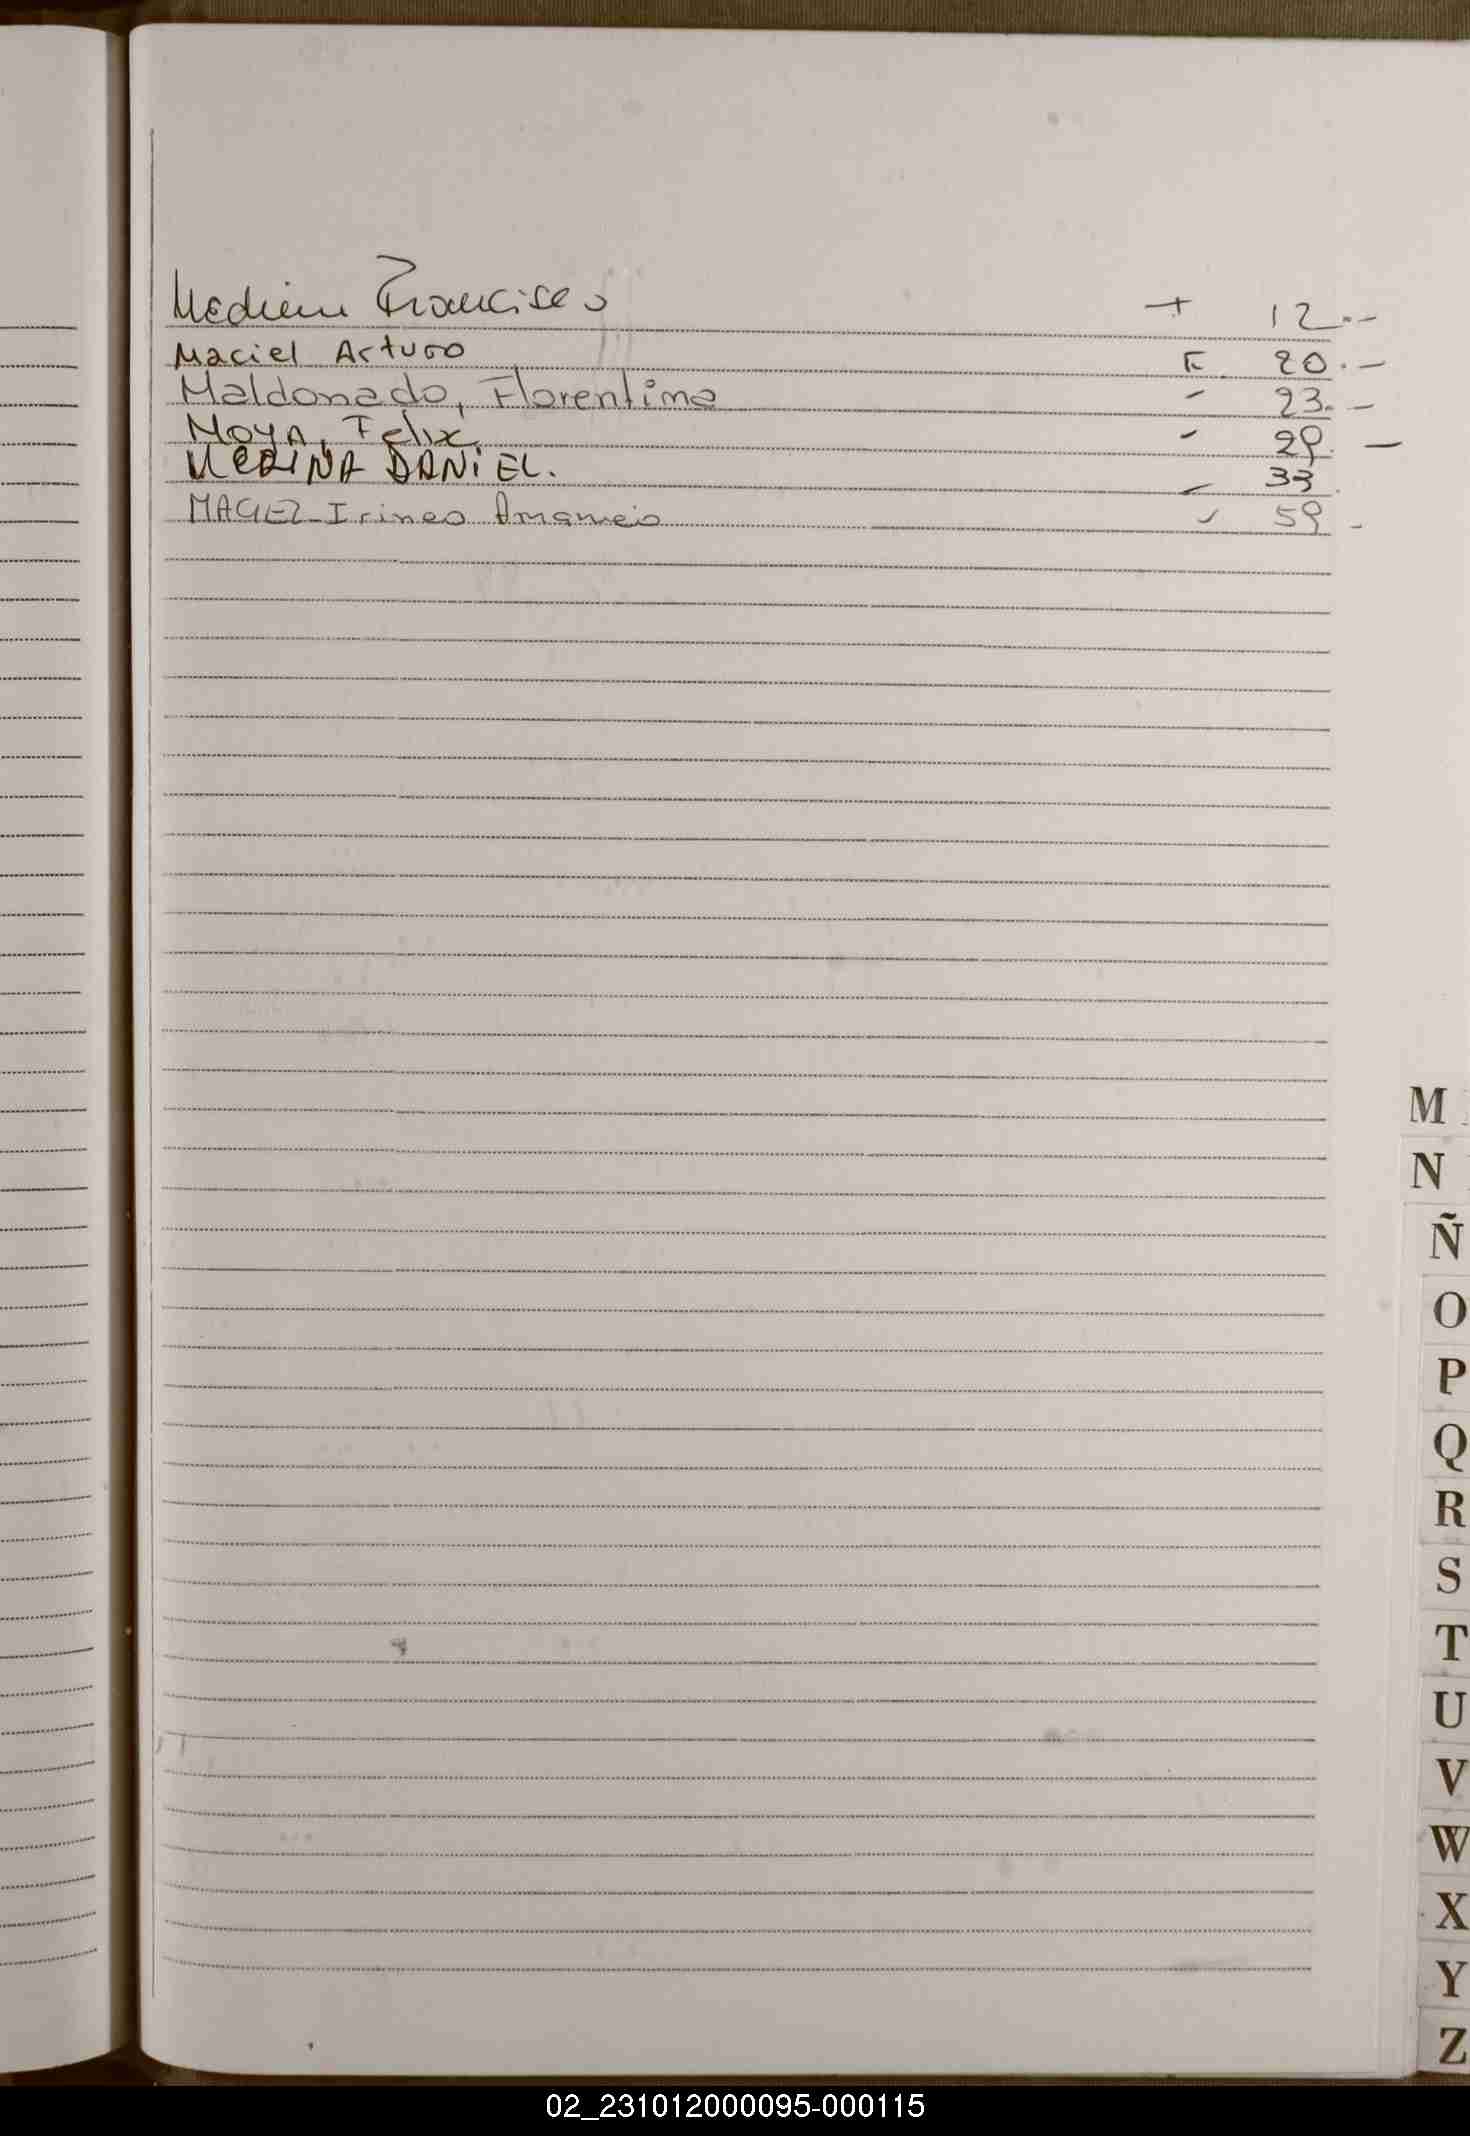 Medina Francisco + 12.-
Maciel Arturo F. 20.-
Maldonado, Florentina - 23.-
MOYA, Felix - 29.-
MEDINA DANIEL. - 33
Irineo - 59 -
M
N
Ñ
O
P
Q
R
S
T
U
V
W
X
Y
Z
02_231012000095-000115